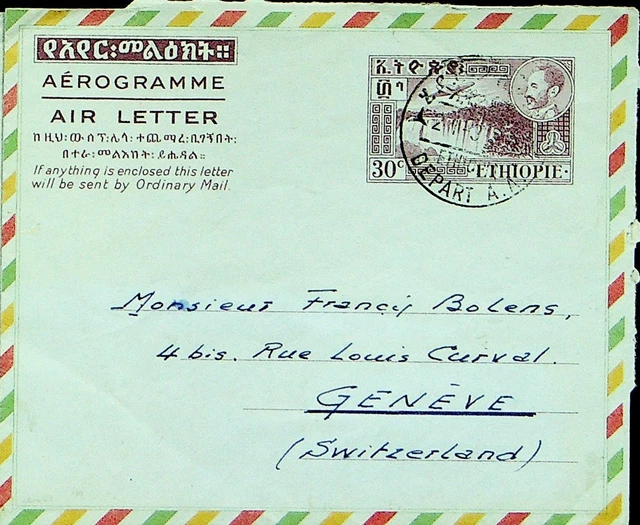 የአየር፡መልዕክት፡፡
AÉROGRAMME
AIR LETTER
ከዚህ፡ውስጥ፡ሌላ፡ተጨማሪ፡ቢገኝበት፡
በተራ፡መልእክት፡ይሔዳል።
If anything is enclosed this letter
will be sent by Ordinary Mail.
ኢትዮጵያ
30c ETHIOPIE
DEPART A.A.
Monsieur Francis Bolens,
4 bis. Rue Louis Curval.
GENÈVE
(Switzerland)